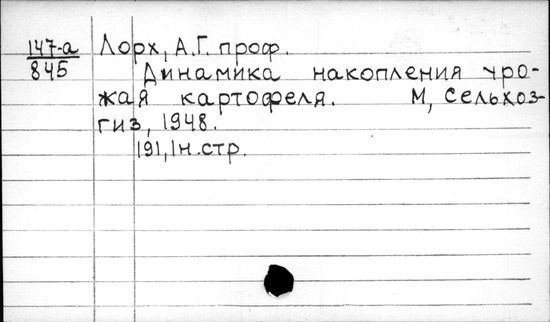 147-а Лорх, А.Г. проф.
845
Динамика накопления уро-
жая картофеля. М, Сельхоз-
гиз, 1948.
191, 1н. стр.